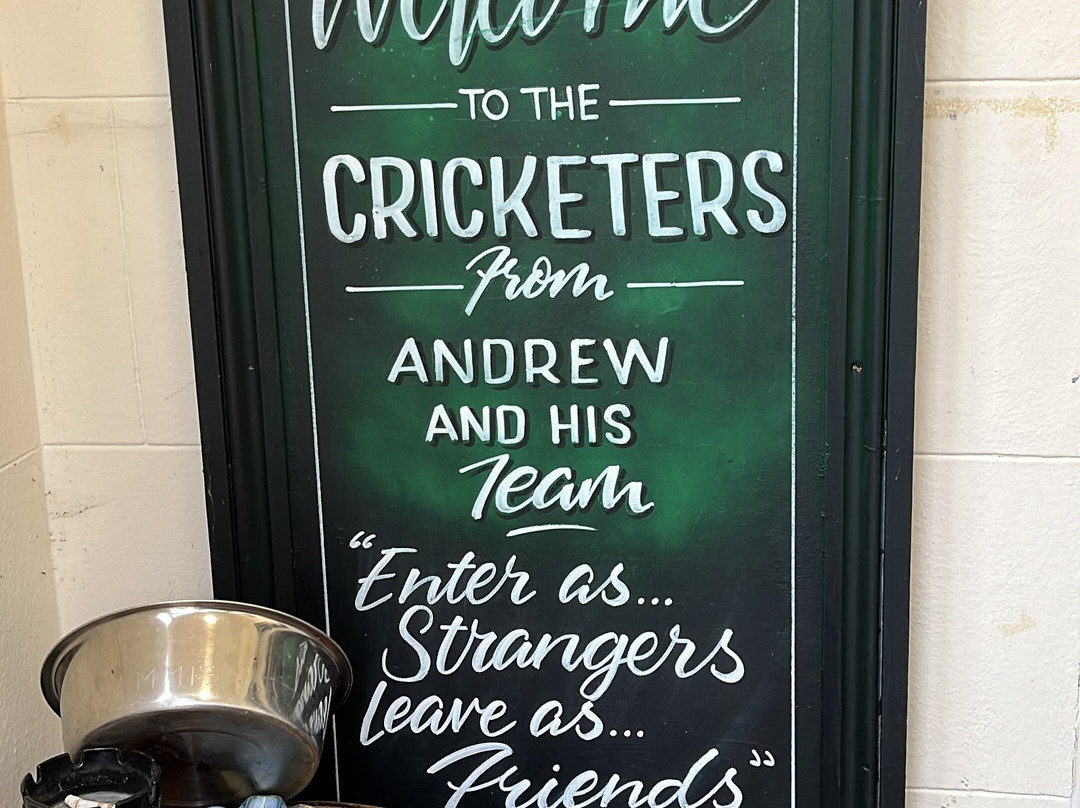 Welcome
TO THE
CRICKETERS
from
ANDREW
AND HIS
Team
“Enter as...
Strangers
Leave as...
Friends”